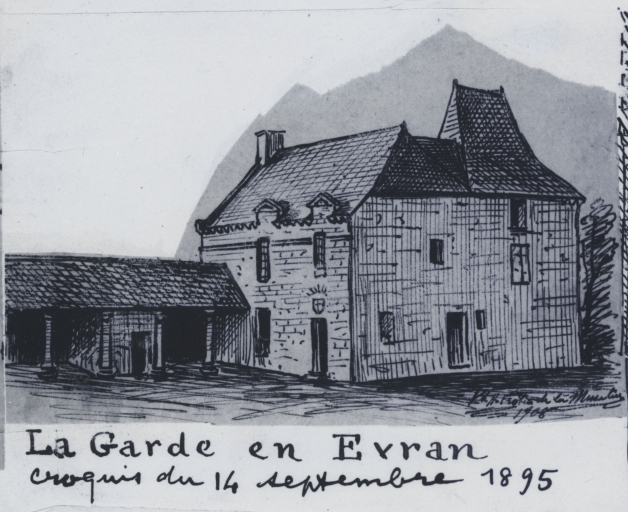 1908
La Garde en Evran
croquis du 14 septembre 1895